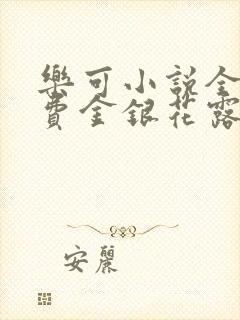 樂可小說全
費金銀花露
安麗